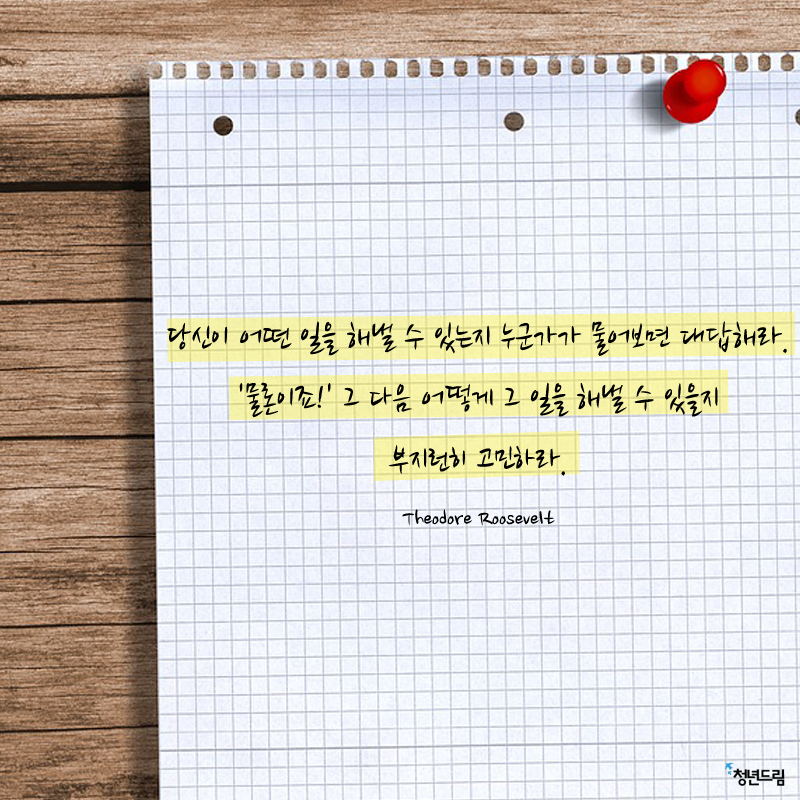 당신이 어떤 일을 해낼 수 있는지 누군가가 물어보면 대답해라.
'물론이죠!' 그 다음 어떻게 그 일을 해낼 수 있을지
부지런히 고민하라.
Theodore Roosevelt
청년드림